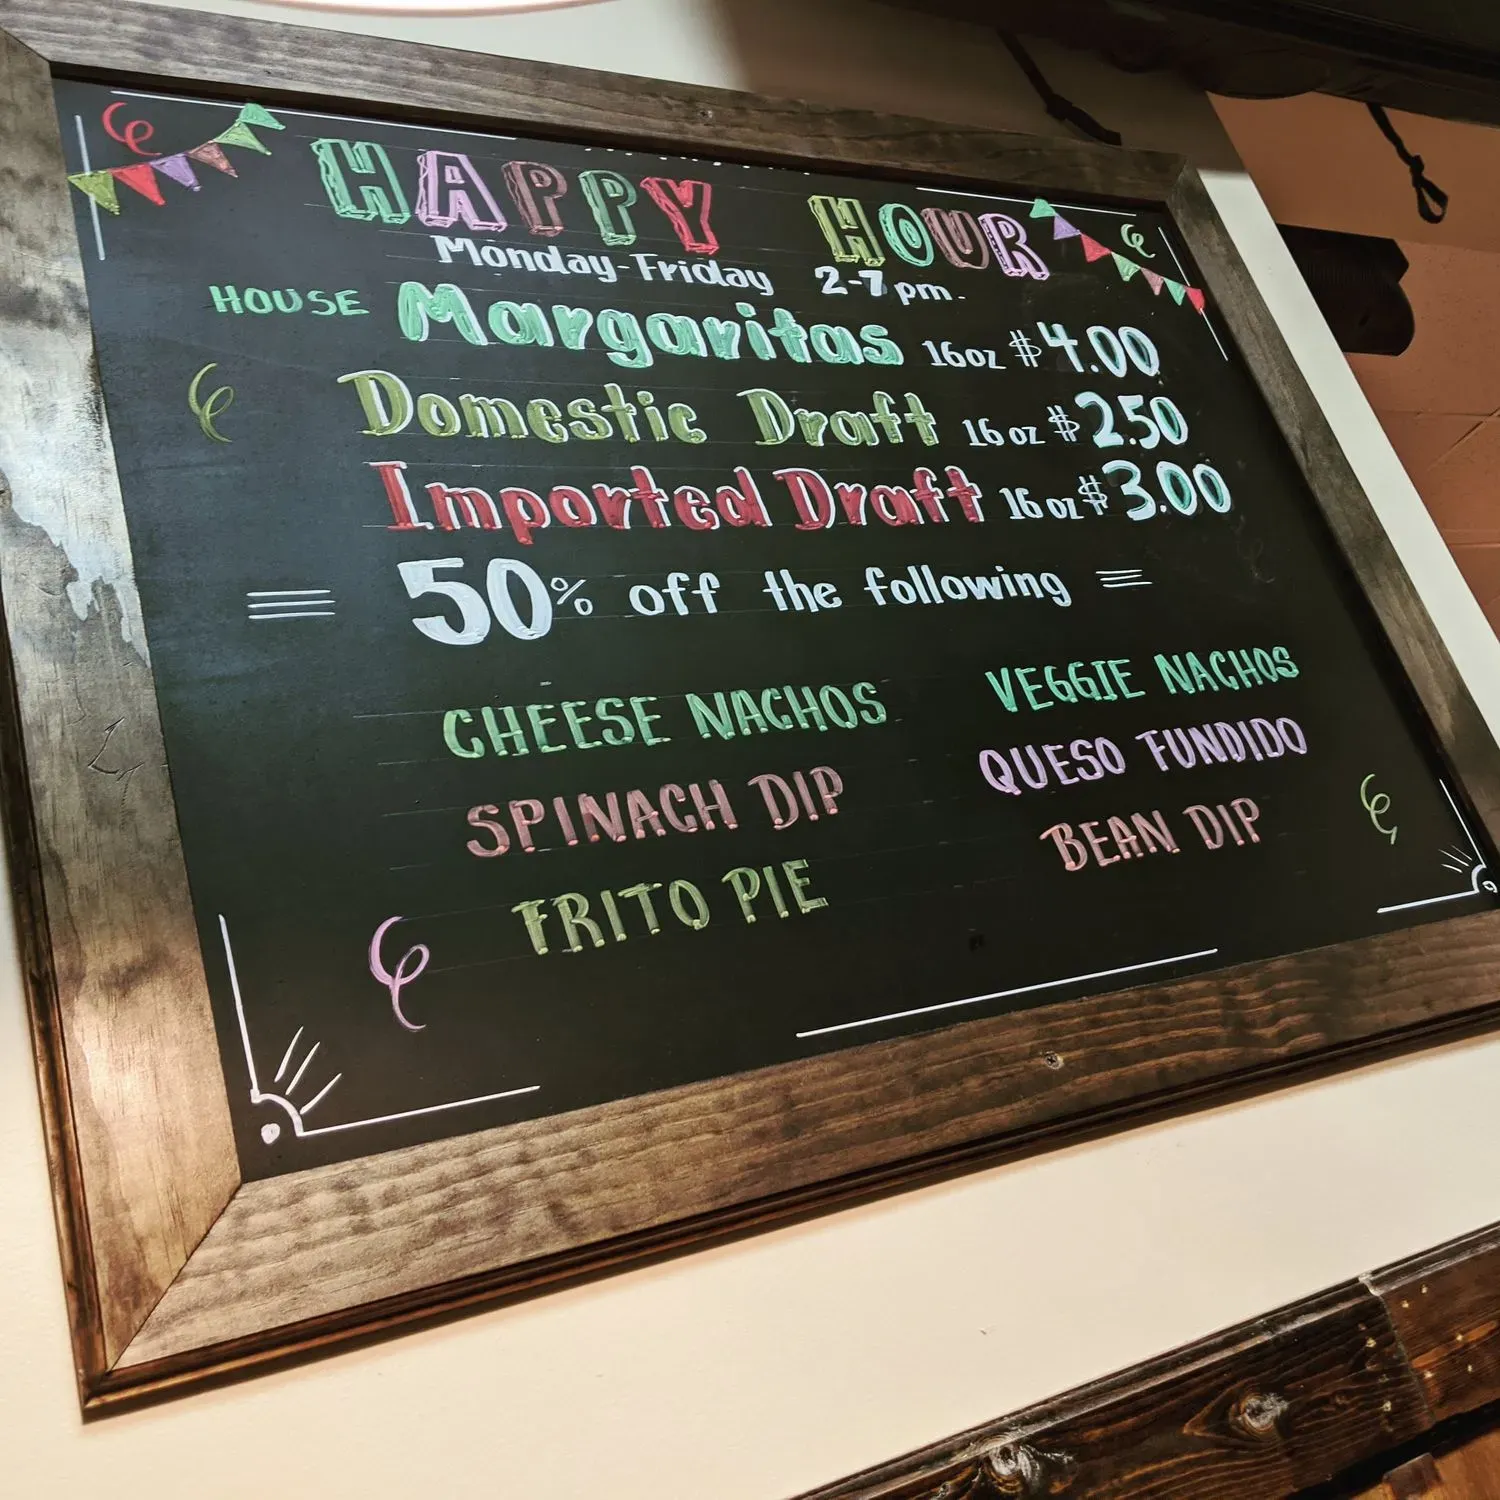 HAPPY HOUR
Monday-Friday 2-7 pm.
HOUSE Margaritas 16oz $4.00
Domestic Draft 16oz $2.50
Imported Draft 16oz $3.00
50% off the following
CHEESE NACHOS
VEGGIE NACHOS
SPINACH DIP
QUESO FUNDIDO
FRITO PIE
BEAN DIP